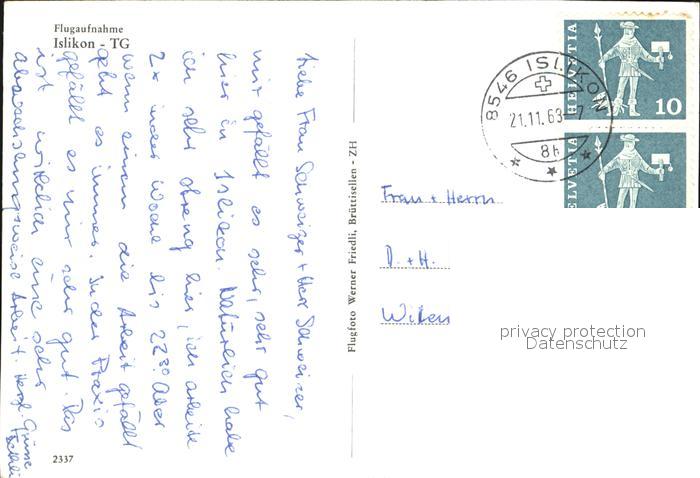 Flugaufnahme
Islikon - TG
Liebe Frau Schweizer + Herr Schweizer,
mir gefällt es sehr, sehr gut
hier in Islikon. Natürlich habe
ich sehr streng hier, ich arbeite
2x in der Woche bis 22³⁰. Aber
wenn einem die Arbeit gefällt
geht es immer. In der Praxis
gefällt es mir sehr gut. Das
ist wirklich eine sehr
abwechslungsweise Arbeit. Herzl. Grüsse
2337
Flugfoto Werner Friedli, Brüttisellen - ZH
8546 ISLIKON
21.11.63-7
HELVETIA
10
HELVETIA
Frau + Herrn
D. + H.
privacy protection
Datenschutz